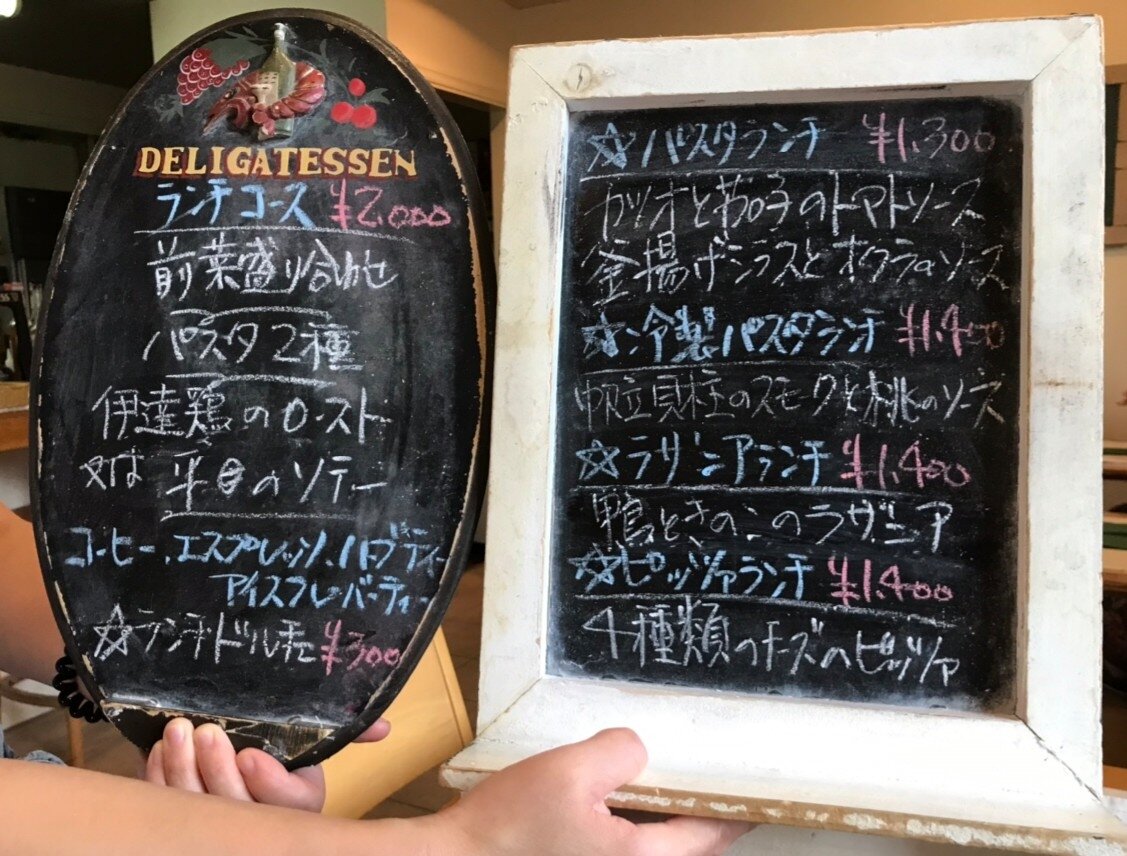 DELIGATESSEN
ランチコース ¥2,000
前菜盛り合わせ
パスタ2種
伊達鶏のロースト
又は 平目のソテー
コーヒー、エスプレッソ、ハーブティー
アイスフレーバーティー
☆ランチドルチェ ¥300
☆パスタランチ ¥1,300
カツオと茄子のトマトソース
釜揚げシラスとオクラのソース
☆冷製パスタランチ ¥1,400
帆立貝柱のスモークと桃のソース
☆ラザニアランチ ¥1,400
鴨ときのこのラザニア
☆ピッツァランチ ¥1,400
4種類のチーズのピッツァ